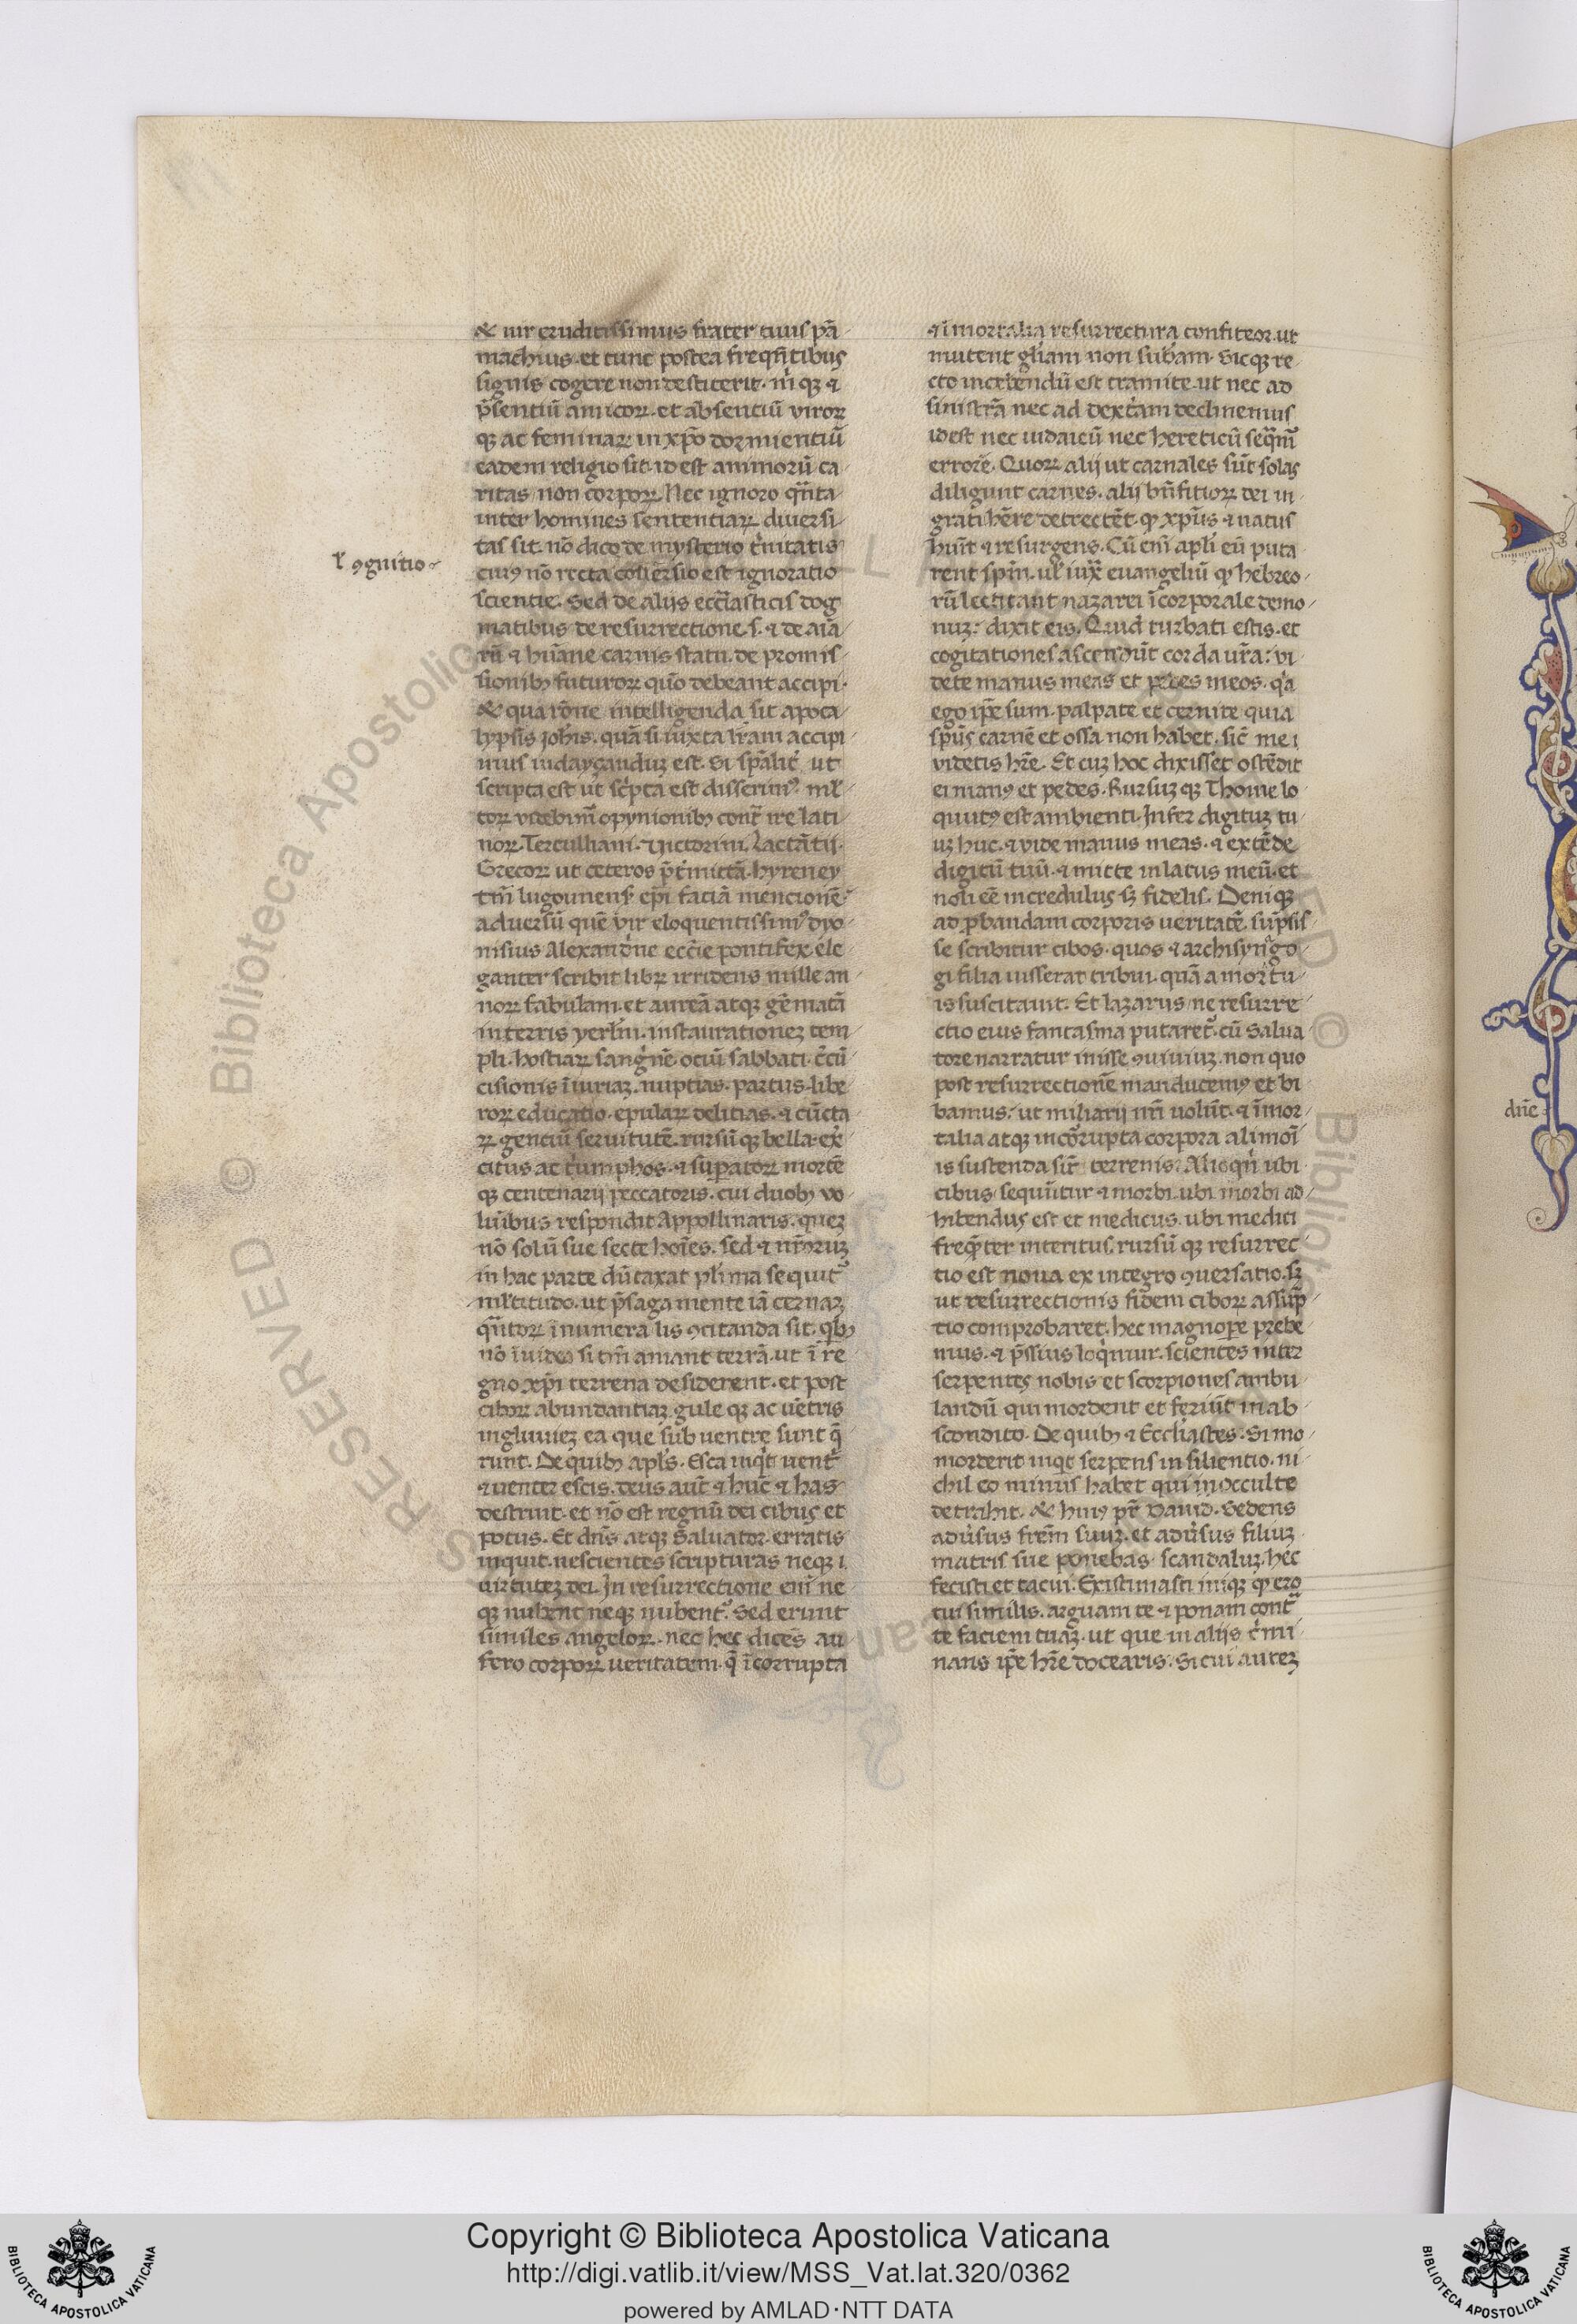 & uir eruditissimus frater tuus pā
machius. et tunc postea freqn̄tibus
signis cogere non destiterit. m̄ qꝫ ⁊
p̄sentiū amicoꝝ. et absentiū viroꝝ
qꝫ ac feminaꝝ in xp̄o dormientiū
eadem religio sit. id est animorū ca
ritas non corpoꝝ. Nec ignoro qn̄ta
inter homines sententiaꝝ diuersi
tas sit. nō dico de mysterio t'nitatis
l' ꝯgnitio
cuiꝰ nō recta ꝯfessio est ignoratio
scientie. Sed de alijs eccl̄asticis dog
matibus de resurrectione. s. ⁊ de aīa
rū ⁊ hūane carnis statu. de promis
sionibꝫ futuroꝝ quō debeant accipi.
& qua rōne intelligenda sit apoca
lypsis ioh̄is. quā si iuxta lr̄am accipi
mus iudayçanduꝫ est. Si sp̄alit' ut
scripta est ut sc'pta est disserimꝰ ml'
toꝝ videbim̄ opynionibꝫ cont̄ ire lati
noꝝ. Terculliani. Victorini. Lactātii.
Grecoꝝ ut ceteros p̄t'mittā. hyreney
tm̄ lugounens' ep̄i faciā mencionē.
aduersū quē vir eloquentissimꝰ dyo
nisius Alexandrine eccl̄ie pontifex ele
ganter scribit libꝝ irridens mille an
noꝝ fabulam. et aureā atqꝫ gēmatā
in terris yerl'm. instaurationeꝫ tem
pli. hostiaꝝ sang'nē. ociū sabbati. c'cū
cisionis īiuriaꝫ. nuptias. partus. libe
roꝝ educatio. epulaꝝ delitias. ⁊ cūcta
ꝝ gentiū seruitutē. rursūqꝫ bella. ex̄
citus ac t'umphos. ⁊ supatoꝝ mortē
qꝫ centenarij peccatoris. cui duobꝫ vo
lūibus respondit Appollinaris. queꝫ
nō solū sue secte hoīes. sed ⁊ nr̄oruꝫ
in hac parte dūtaxat pl'ima sequit'
ml'titudo. ut p̄saga mente iā cernaꝫ
qn̄toꝝ īnumera lis ꝯcitanda sit. qbꝫ
nō īuideo si tm̄ amant terrā. ut ī re
gno xp̄i terrena desiderent. et post
ciboꝝ abundantiaꝫ gule qꝫ ac uētris
ingluuieꝫ ea que sub uentre sunt q̄
runt. De quibꝫ apl's. Esca inq't uent'
⁊ uenter escis. deus aut̄ ⁊ hūc ⁊ has
destruit. et nō est regnū dei cibus et
potus. Et dn̄s atqꝫ Saluator. erratis
inquit. nescientes scripturas neqꝫ
uirtuteꝫ dei. In resurrectione enī ne
qꝫ nubent neqꝫ nubent'. Sed erunt
similes angeloꝝ. nec hec dicēs au
fero corpoꝝ ueritatem. q̄ īcorrupta
⁊ īmortalia resurrectura confiteor. ut
mutent gl'iam non sub'am. Sicqꝫ re
cto incedendū est tramite. ut nec ad
sinistrā nec ad dext'am declinemus
id est nec iudaicū nec hereticū seq̄m̄
errorē. Quoꝝ alij ut carnales sūt solas
diligunt carnes. alij bn̄fitioꝝ dei in
grati hēre detrectēt. qꝫ xp̄us ⁊ natus
h'uit ⁊ resurgens. Cū enī apl'i eū puta
rent sp̄m. ul' iuxᵃ euangeliū qꝫ hebreo
rū lectitant nazarei īcorporale demo
nuꝫ: dixit eis. Quid turbati estis. et
cogitationes ascendūt corda ur̄a: vi
dete manus meas et pedes meos. qa
ego ip̄e sum. palpate et cernite quia
sp̄us carnē et ossa non habet. sic̄ me
videtis hr̄e. Et cuꝫ hoc dixisset ostēdit
ei manꝰ et pedes. Rursuꝫ qꝫ Thome lo
quutꝰ est ambienti. Infer digituꝫ tu
uꝫ huc. ⁊ vide manus meas. ⁊ extēde
digitū tuū. ⁊ mitte in latus meū. et
noli eē incredulus sꝫ fidelis. Deniqꝫ
ad ꝓbandam corporis ueritatē. sūpsis
se scribitur cibos. quos ⁊ archisyn̄go
gi filia iusserat tribui. quā a mortu
is suscitauit. Et lazarus ne resurre
ctio eius fantasma putaret'. cū Salua
tore narratur inisse ꝯuiuiuꝫ. non quo
post resurrectionē manducemꝰ et bi
bamus: ut miliarij nr̄i uolūt. ⁊ īmor
talia atqꝫ incōrupta corpora alimoī
is sustenda sīt terrenis. Alioqn̄ ubi
cibus sequūtur ⁊ morbi. ubi morbi ad
hibendus est et medicus. ubi medici
freqn̄ter interitus. rursū qꝫ resurrec
tio est noua ex integro ꝯuersatio. sꝫ
ut resurrectionis fidem ciboꝝ assūp
tio comprobaret. hec magnopere prebe
mus. ⁊ p̄ssius loq'mur. scientes inter
serpentes nobis et scorpiones ambu
landū qui mordent et feriūt in ab
scondito. De quibꝫ ⁊ Eccl'iastes. Si mo
morderit inqt serpens in silientio. ni
chil eo minus habet qui in occulte
detrahit. & huiꝰ pr̄ Dauid. Sedens
adūsus frēm̄ suuꝫ. et adūsus filiuꝫ
matris sue ponebas scandaluꝫ. hec
fecisti et tacui. Existimasti iniqꝫ qꝫ ero
tui similis. arguam te ⁊ ponam cont̄
te faciem tuaꝫ. ut que in alijs c'mi
nans ip̄e hr̄e docearis. Si cui aureꝫ
dn̄e
Copyright © Biblioteca Apostolica Vaticana
http://digi.vatlib.it/view/MSS_Vat.lat.320/0362
powered by AMLAD·NTT DATA